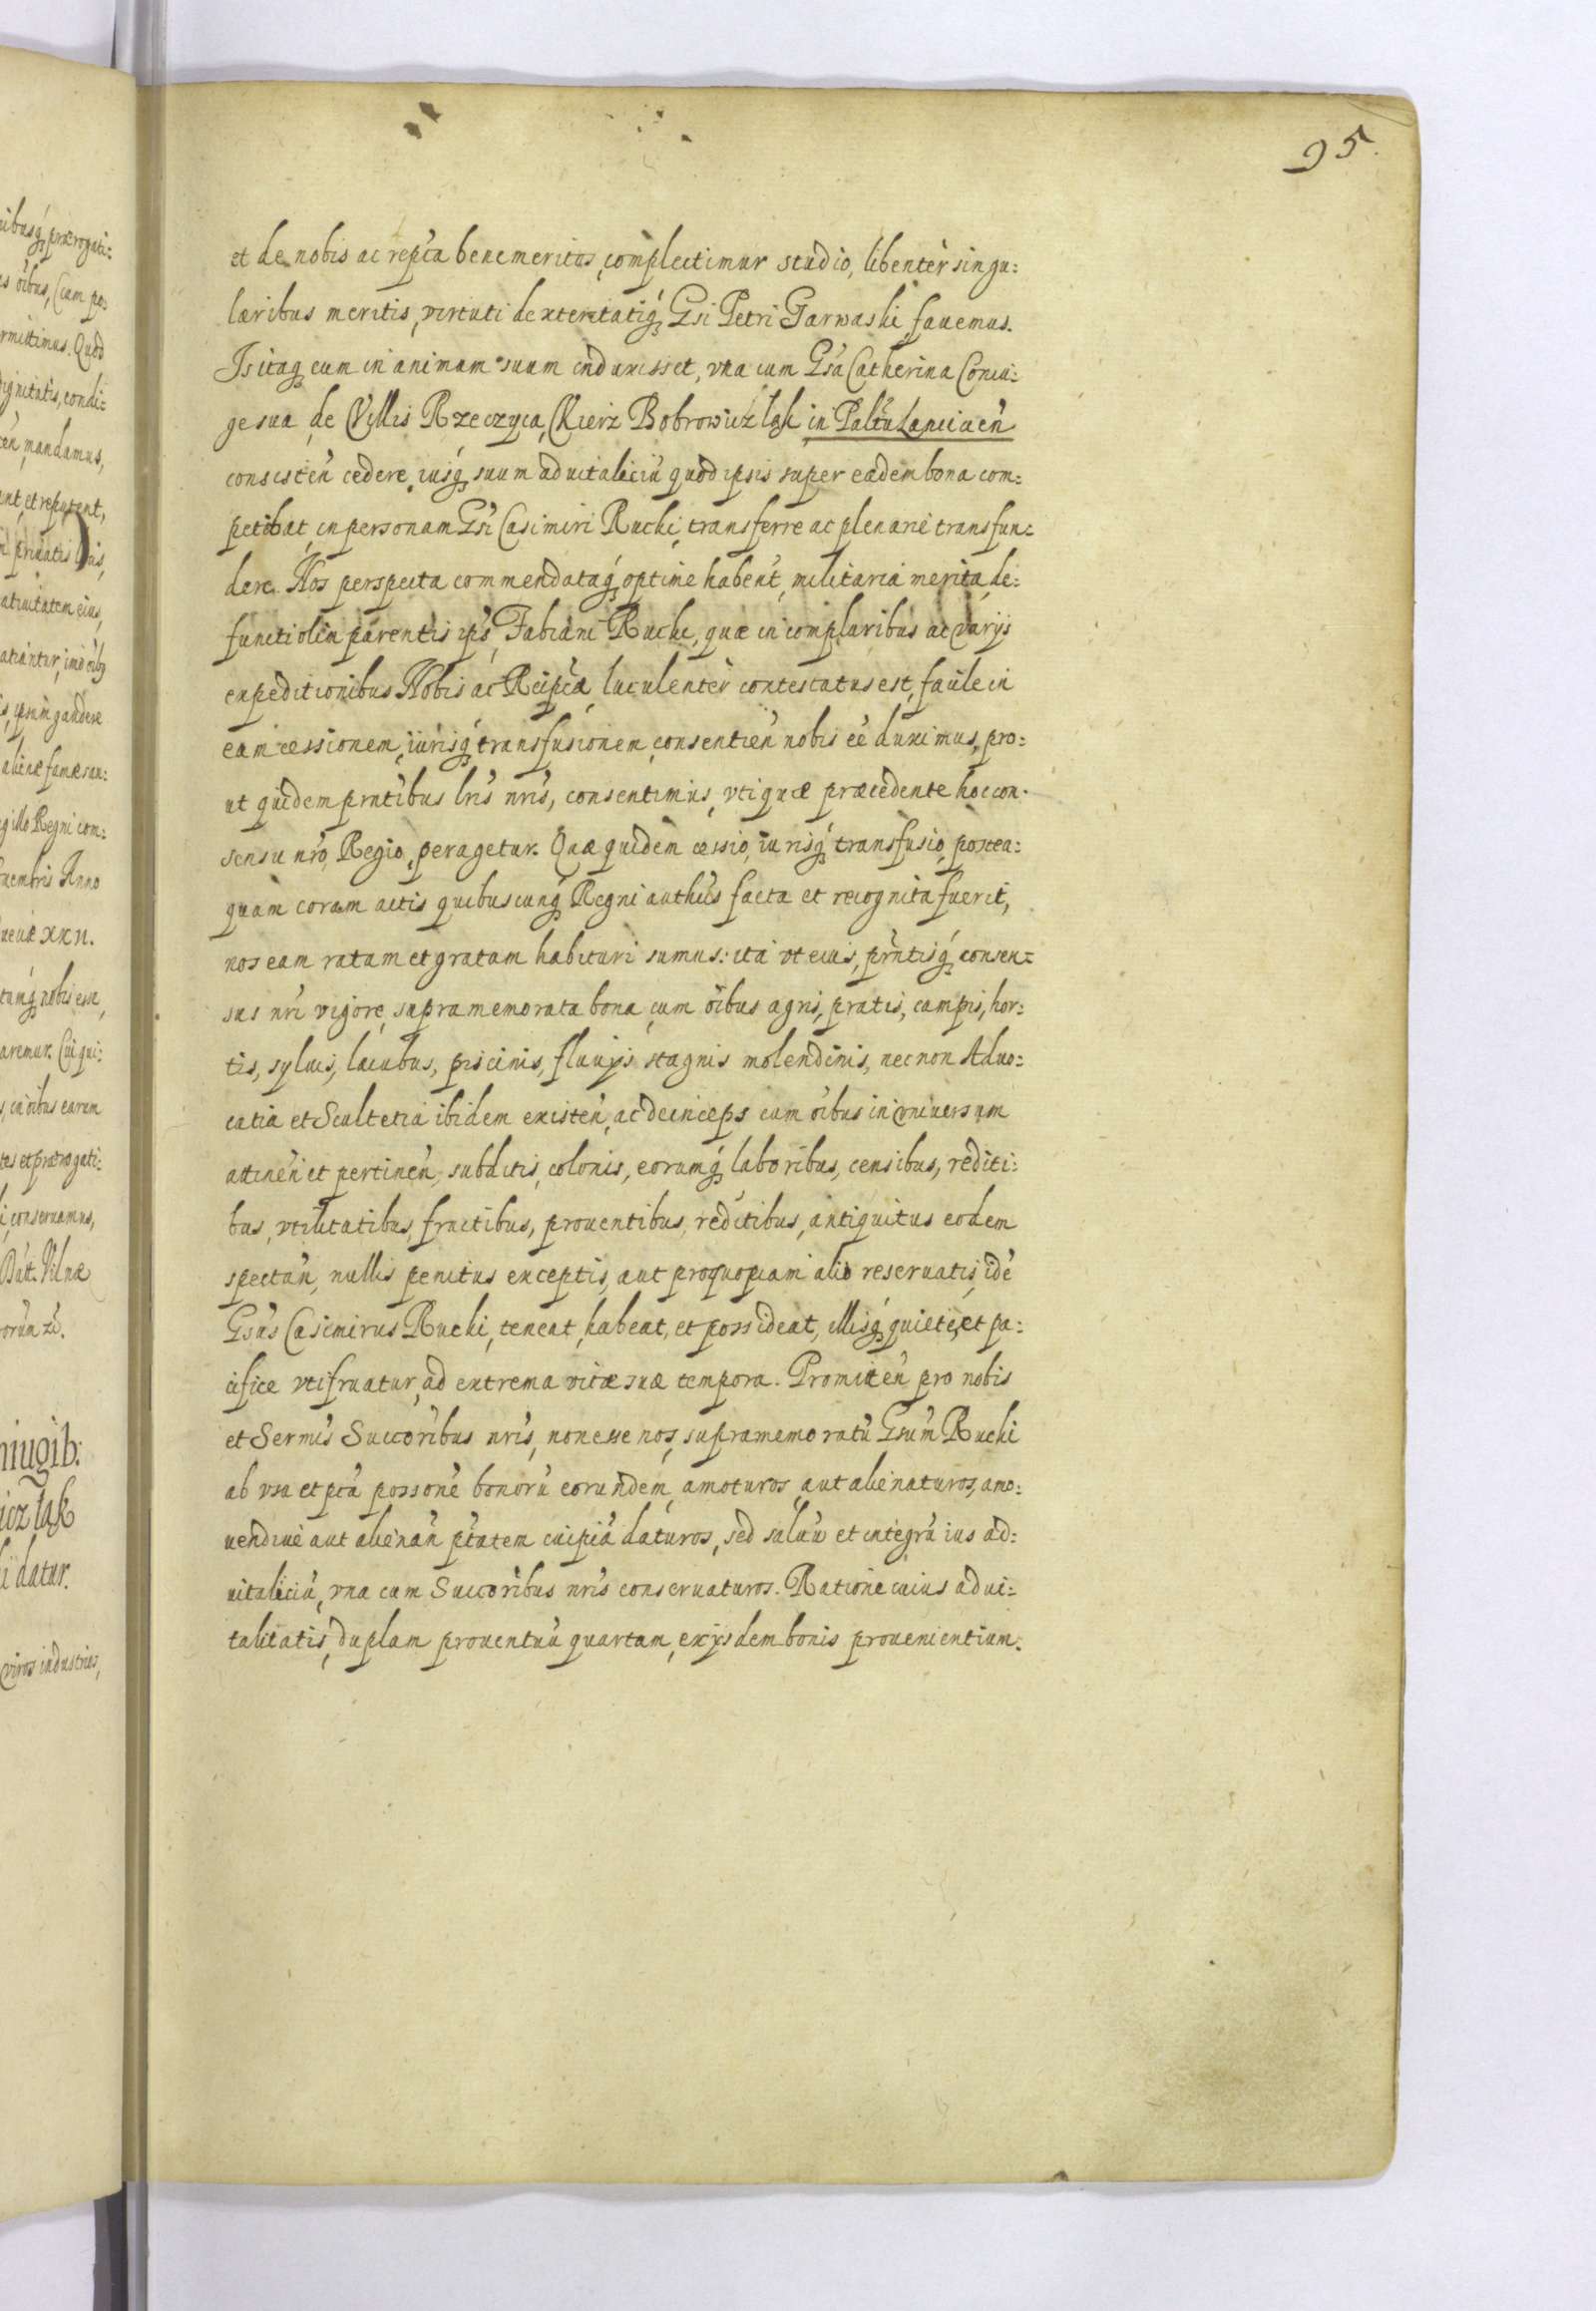 95.
et de nobis ac repća benemeritos, complectimur studio, libentèr singu:
laribus meritis, virtuti dexteritatiq́ Gsi Petri Garwaski fauemus.
Is itaq́ cum in animam suum induxisset, vna cum Gsa Catherina Coniu:
ge sua de Villis Rzeczyca, Kierz Bobrowicz lask in Paltŭ Lanciciĕn
consistĕn cedere, iusq́ suum aduitaliciŭ quod ipsis super eadem bona com:
petebat in personam Gsi Casimiri Rucki, transferre ac plenariè transfun:
dere. Nos perspecta commendataq́ optimè habent, militaria merita, de:
functi olim parentis ips, Fabiani Rucki, quæ in compluribus ac varijs
expeditionibus Nobis ac Reipćæ, luculentèr contestatus est, facile in
eam cessionem, iurisq́ transfusionem, consentiĕn nobis eĕ duximus, pro:
ut quidem pntibus lris nris, consentimus, vti quæ præcedente hoc con:
sensu nro Regio, peragetur. Quæ quidem cessio, iurisq́ transfusio, postea:
quam coram actis quibuscunq́ Regni authis facta et recognita fuerit,
nos eam ratam et gratam habituri sumus: ita vt eius, pṙntisq́ consen:
sus nri vigore, supramemorata bona, cum oibus agris, pratis, campis, hor:
tis, syluis, lacubus, piscinis, fluuijs stagnis molendinis, nec non Aduo:
catia et Scultetia ibidem existĕn, ac deinceps cum oibus in vniuersum
attinĕn et pertinĕn, subditis, colonis, eorumq́ laboribus, censibus, rediti:
bus, vtilitatibus, fructibus, prouentibus, reditibus, antiquitus eodem
spectăn, nullis penitus exceptis, aut pro quopiam alio reseruatis, idĕ
Gsus Casimirus Rucki, teneat, habeat, et possideat, illisq́ quietè, et pa:
cifice vtifruatur, ad extrema vitæ suæ tempora. Promittĕn pro nobis
et Sermis Succoribus nris, non esse nos, supramemoratŭ Gsum Rucki
ab vsu et pca possonĕ bonorŭ eorundem, amoturos, aut alienaturos, amo:
uendiuè aut alienăn ptatem cuipiă daturos, sed saluŭ et integrŭ ius ad:
uitaliciŭ, vna cum Succoribus nris conseruaturos. Ratione cuius aduí:
talitatis, duplam prouentuŭ quartam, ex ijsdem bonis prouenientium.